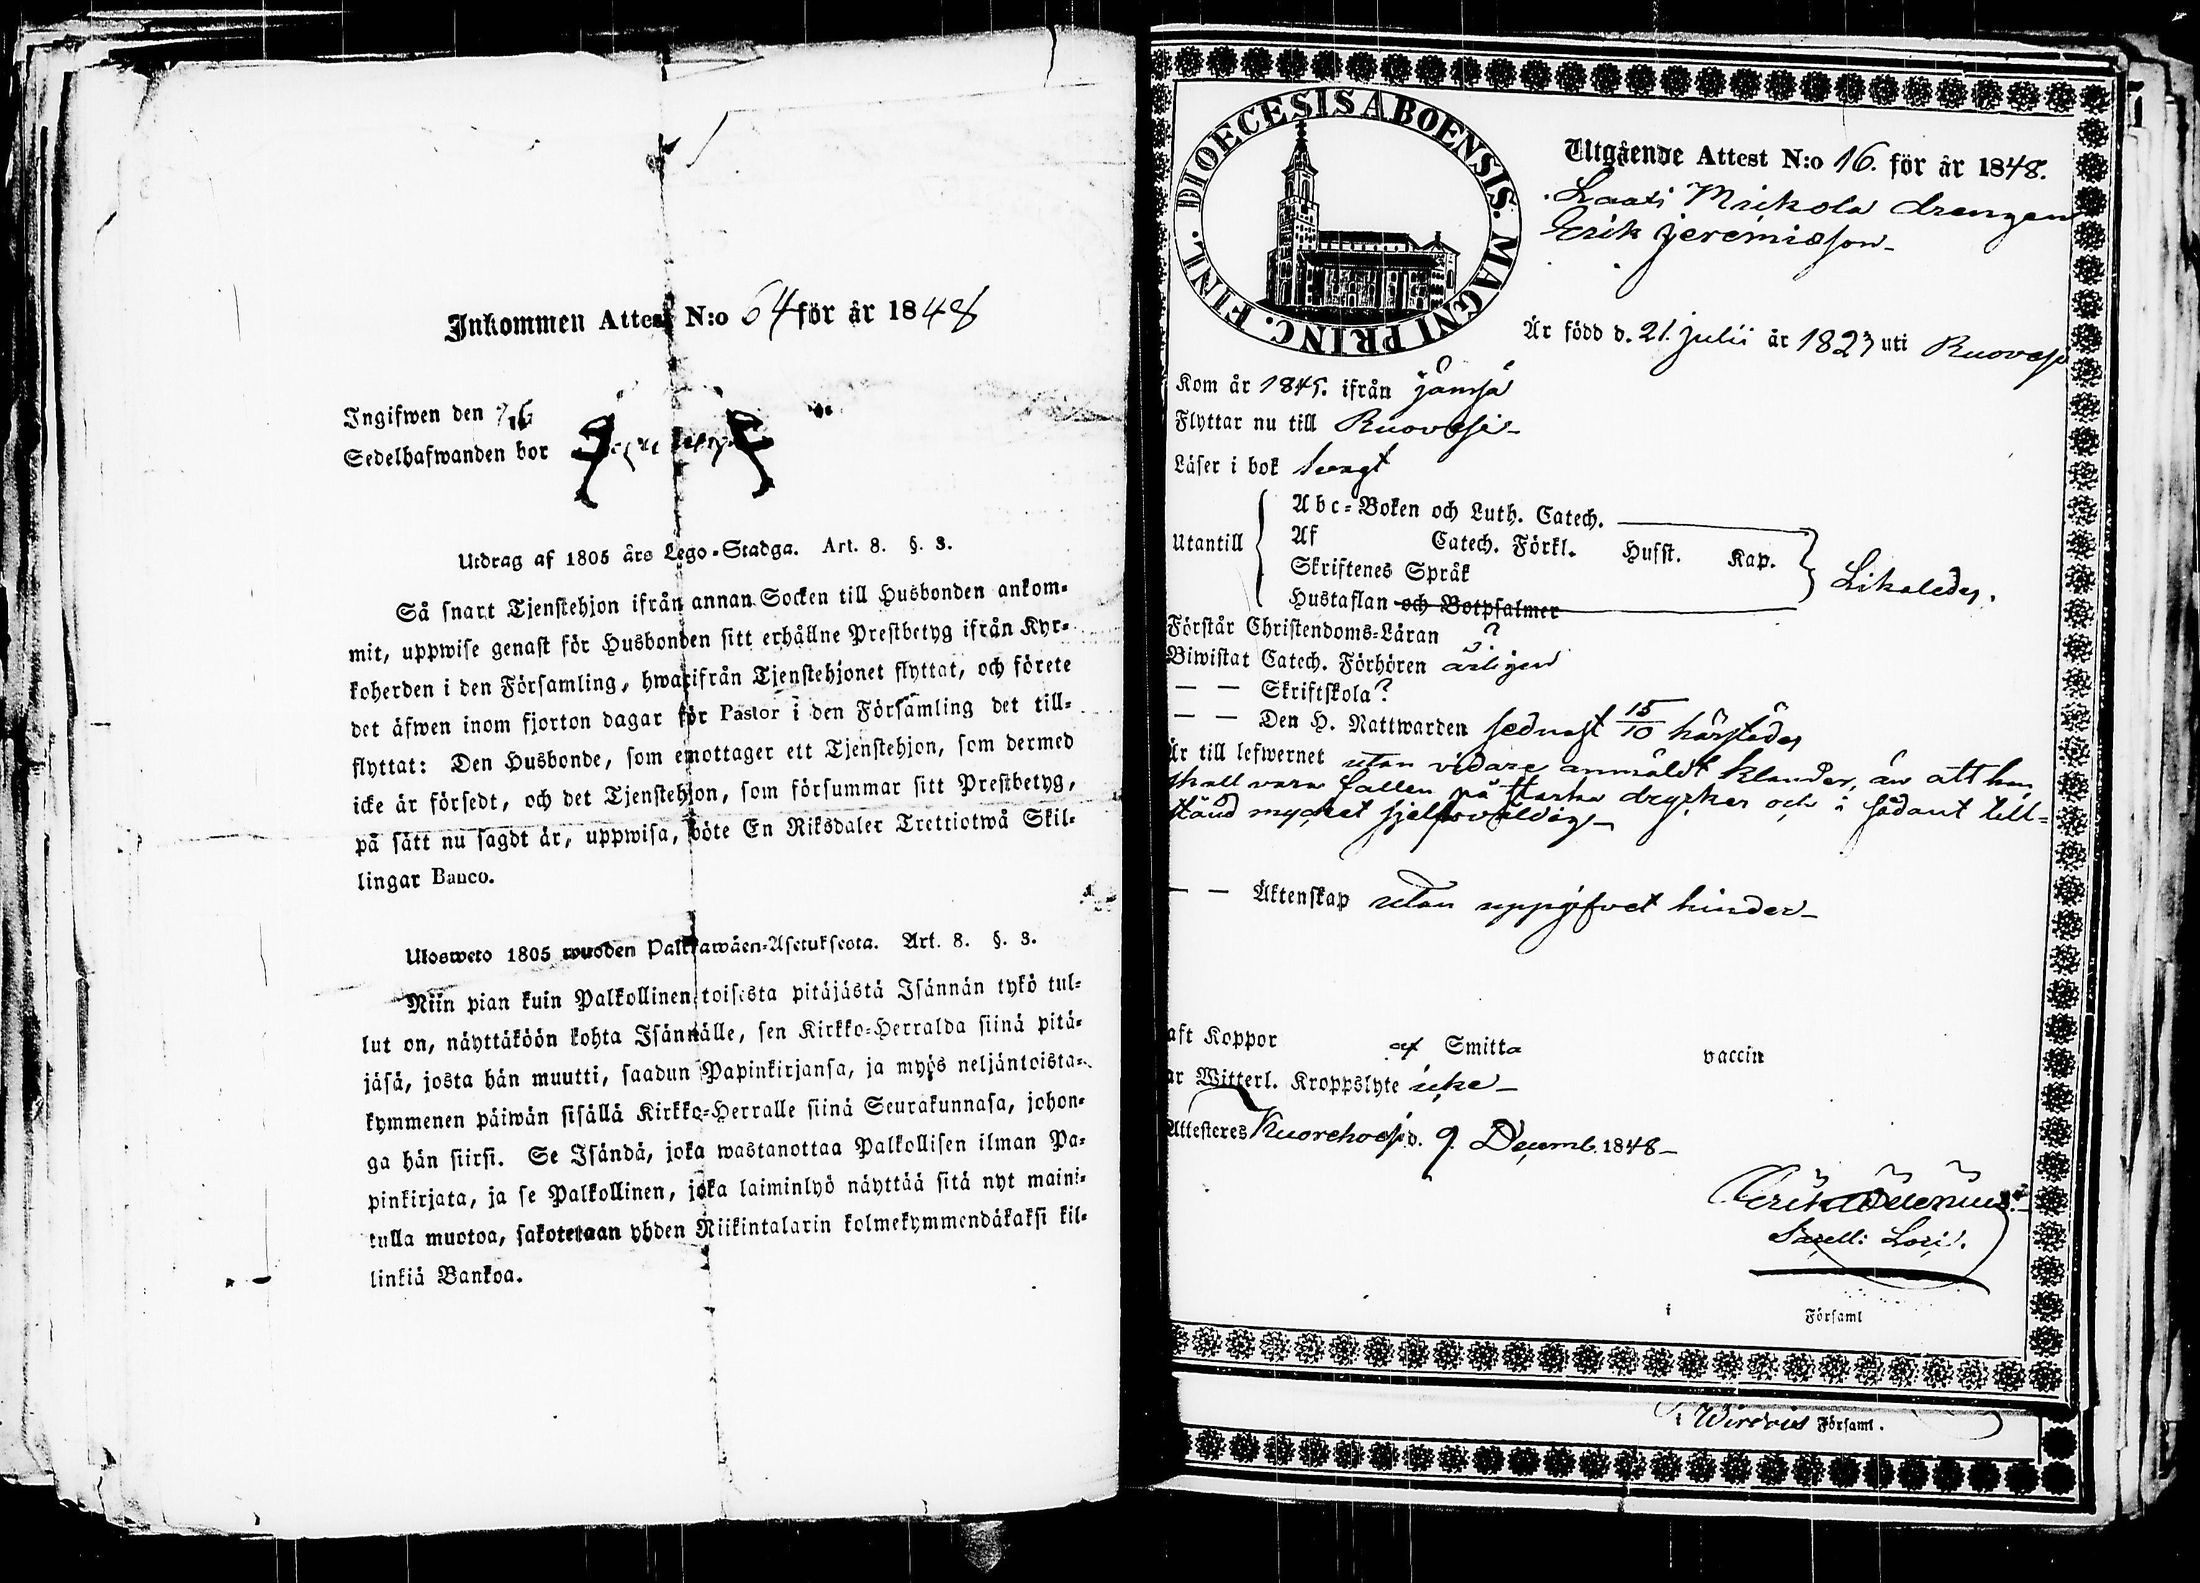 Inkommen Attest N:o 64 för år 1848
Ingifwen den
Sedelhafwanden bor
Utdrag af 1805 års Lego-Stadga. Art. 8. §. 3.
Så snart Tjenstehjon ifrån annan Socken till Husbonden ankom-
mit, uppwise genast för Husbonden sitt erhållne Prestbetyg ifrån Kyr-
koherden i den Församling, hwarifrån Tjenstehjonet flyttat, och förete
det äfwen inom fjorton dagar för Pastor i den Församling det till-
flyttat: Den Husbonde, som emottager ett Tjenstehjon, som dermed
icke är försedt, och det Tjenstehjon, som försummar sitt Prestbetyg,
på sätt nu sagdt är, uppwisa, böte En Riksdaler Trettiotwå Skil-
lingar Banco.
Uloswето 1805 wuoden Palkkawäen-Asetuksesta. Art. 8. §. 3.
Niin pian kuin Palkollinen toisesta pitäjästä Isännän tykö tul-
lut on, näyttäköön kohta Isännälle, sen Kirkko-Herralda siinä pitä-
jäsä, josta hän muutti, saadun Papinkirjansa, ja myös neljäntoista-
kymmenen päiwän sisällä Kirkko-Herralle siinä Seurakunnasa, johon-
ga hän siirsi. Se Isändä, joka wastanottaa Palkollisen ilman Pa-
pinkirjata, ja se Palkollinen, joka laiminlyö näyttää sitä nyt maini-
tulla muotoa, sakotetaan yhden Riikintalarin kolmekymmendäkaksi kil-
linkiä Bankoa.
DIOECESIS ABOENSIS. MAGNI PRINC. FINL.
Utgående Attest N:o 16. för år 1848.
Laati Mrikola drengen
Erik Jeremiasson
Är född d. 21. Julii år 1823 uti Ruovesi
Kom år 1845. ifrån Jämsä
Flyttar nu till Ruovesi
Läser i bok svagt
Utantill
Abc-Boken och Luth. Catech.
Af Catech. Förkl. Husst. Kap.
Skriftenes Språk
Hustaflan och Botpsalmer
Likaledes.
Förstår Christendoms-Läran ?
Biwistat Catech. Förhören årligen
— — Skriftskola ?
— — Den H. Nattwarden sednast 15/10 härstädes
Är till lefwernet utan vidare anmäldt klander, än att han
skall vara fallen på starka drycker och i sådant till-
stånd mycket sjelfsvåldig
— — Äktenskap utan uppgifvet hinder
aft Koppor af Smitta vaccin
ar Witterl. Kroppslyte icke
Attesteres Kuorehvesi d. 9. Decemb. 1848
Erik
Sacell:
i Församl
i Wirdois Församl.